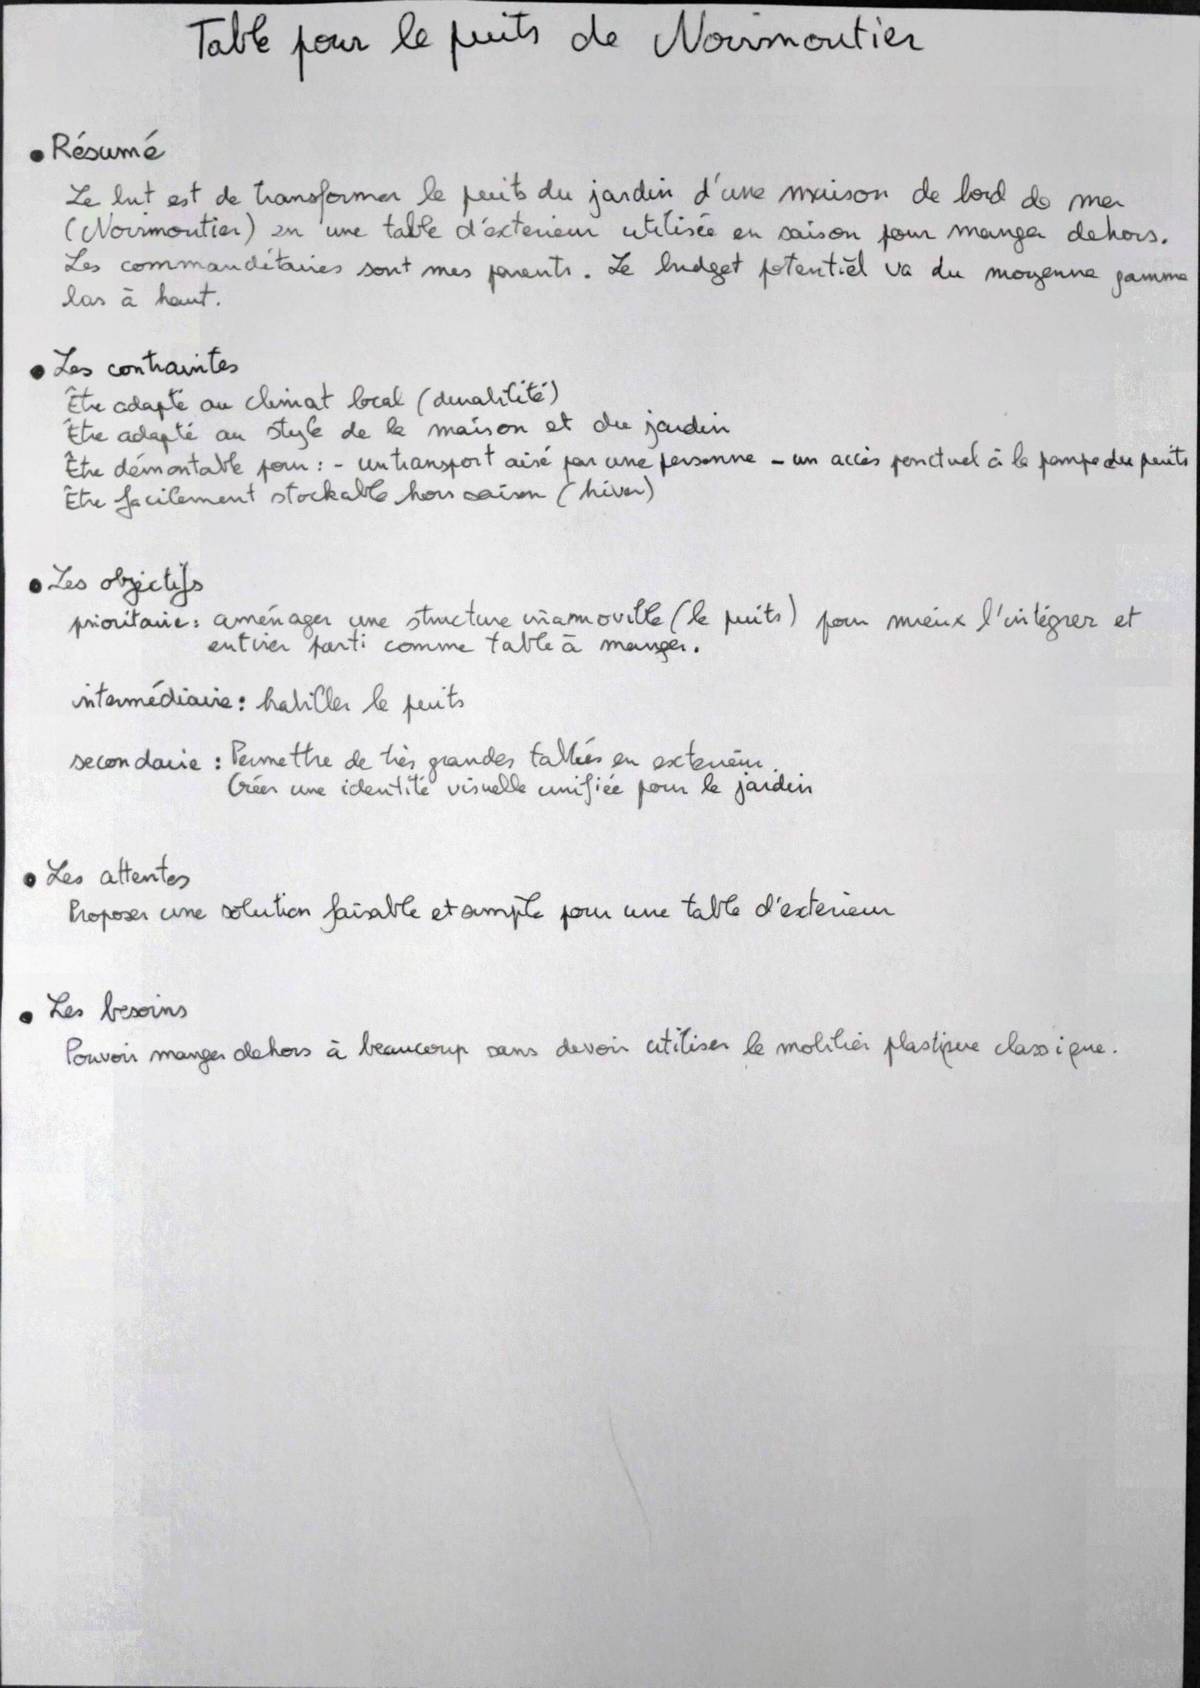 Table pour le puits de Noirmoutier
• Résumé
Le but est de transformer le puits du jardin d'une maison de bord de mer
(Noirmoutier) en une table d'exterieur utilisée en saison pour manger dehors.
Les commanditaires sont mes parents. Le budget potentiel va du moyenne gamme
bas à haut.
• Les contraintes
Être adapté au climat local (durabilité)
Être adapté au style de la maison et du jardin
Être démontable pour : - un transport aisé par une personne - un accès ponctuel à la pompe du puits
Être facilement stockable hors saison (hiver)
• Les objectifs
prioritaire : aménager une structure inamovible (le puits) pour mieux l'intégrer et
en tirer parti comme table à manger.
intermédiaire : habiller le puits
secondaire : Permettre de très grandes tablées en exterieur.
Créer une identité visuelle unifiée pour le jardin
• Les attentes
Proposer une solution faisable et simple pour une table d'exterieur
• Les besoins
Pouvoir manger dehors à beaucoup sans devoir utiliser le mobilier plastique classique.